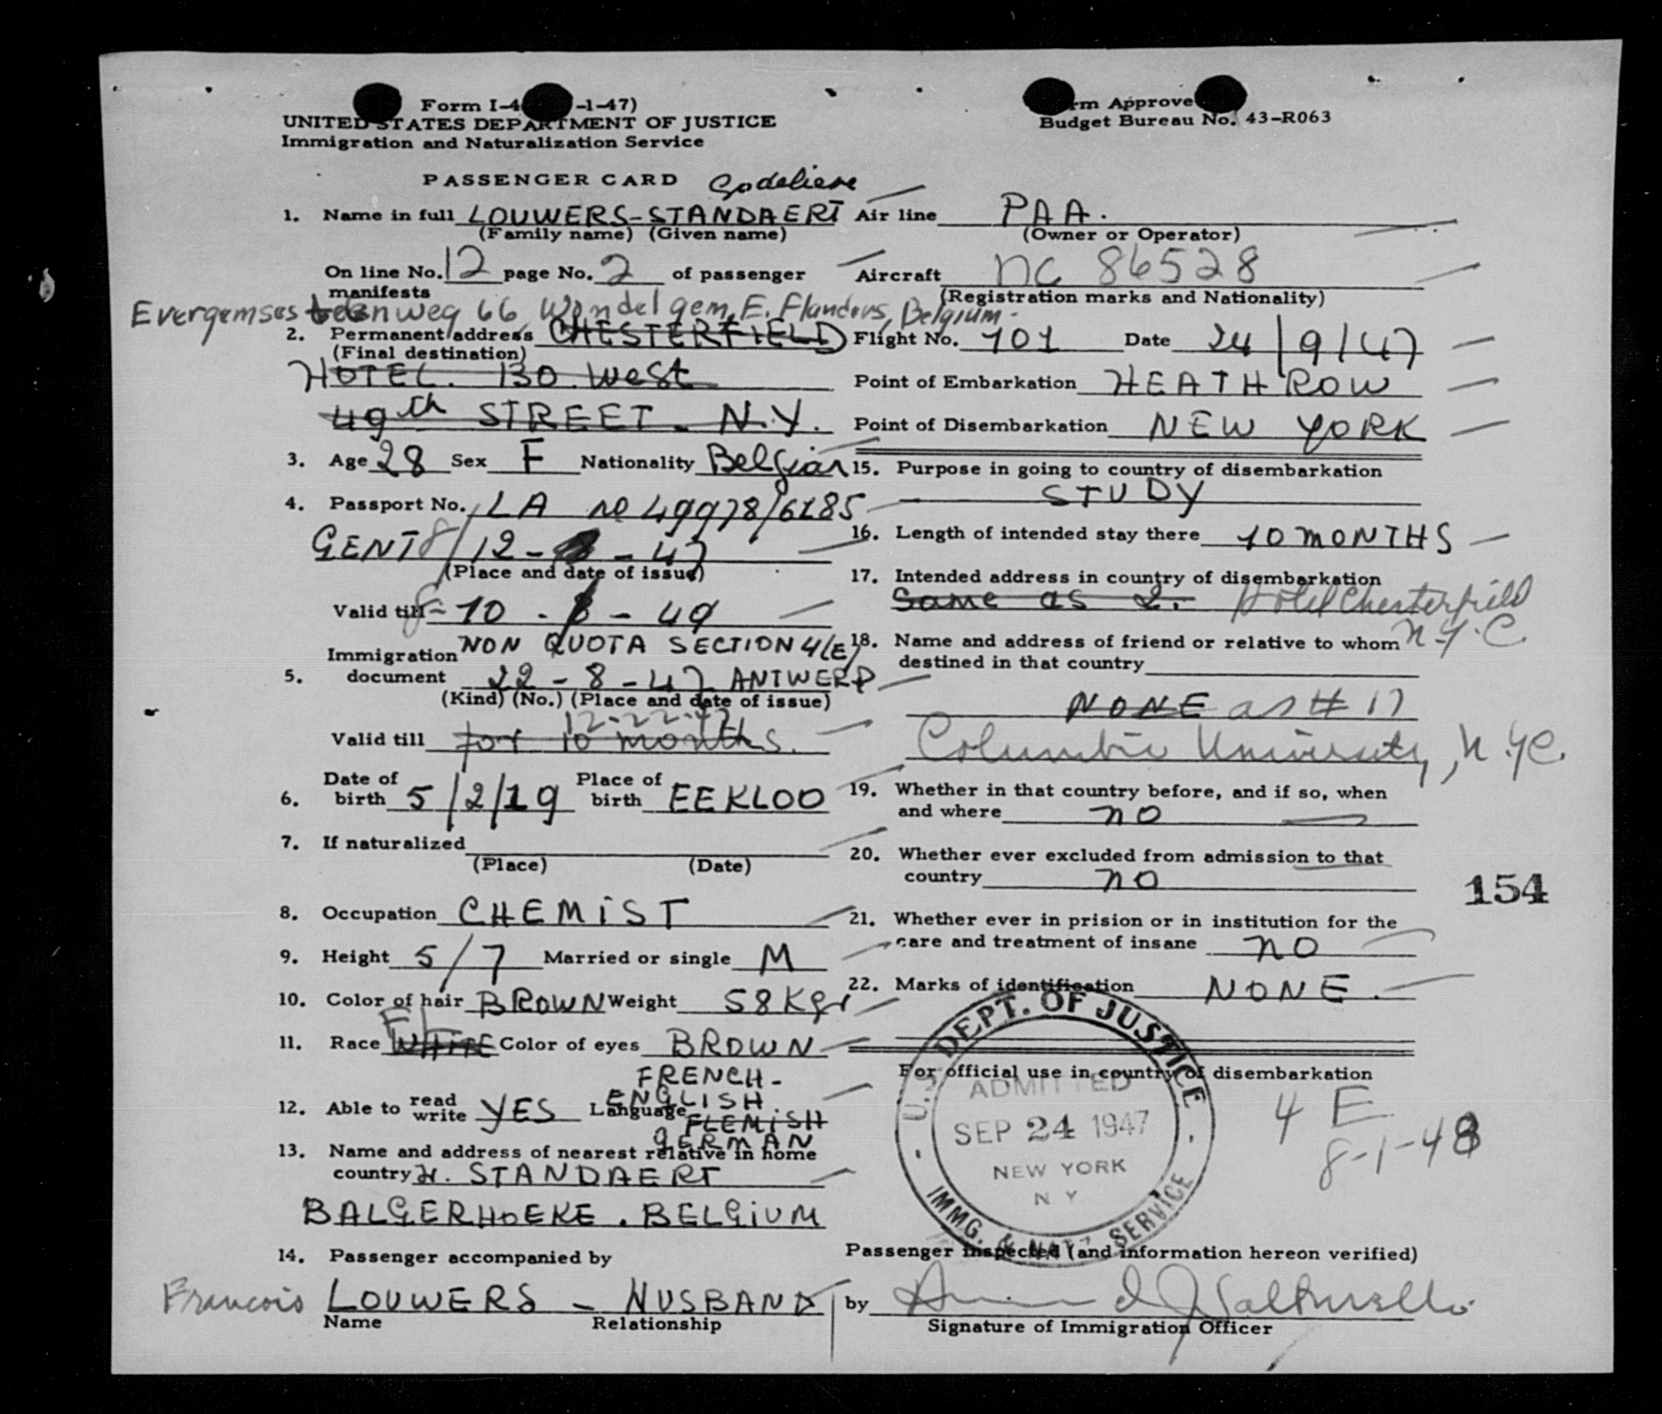 Form I-4 -1-47)
UNITED STATES DEPARTMENT OF JUSTICE
Immigration and Naturalization Service
rm Approve
Budget Bureau No. 43-R063
PASSENGER CARD Godelieve
1. Name in full LOUWERS-STANDAERT
(Family name) (Given name)
On line No. 12 page No. 2 of passenger
manifests
Evergemses teenweg 66 Wondelgem, E. Flanders, Belgium-
2. Permanent address CHESTERFIELD
(Final destination)
HOTEL. 130 West
49th STREET. N.Y.
3. Age 28 Sex F Nationality Belgian
4. Passport No. LA no 49978/6285
GENT 8/12- - 47
(Place and date of issue)
Valid till 8-10 - 8 - 49
Immigration NON QUOTA SECTION 4(E)
5. document 22-8-47 ANTWERP
(Kind) (No.) (Place and date of issue)
12-22-47
Valid till for 10 months.
6. Date of birth 5/2/19 Place of birth EEKLOO
7. If naturalized
(Place) (Date)
8. Occupation CHEMIST
9. Height 5/7 Married or single M
10. Color of hair BROWN Weight 58 Kgr
Fl
11. Race WHITE Color of eyes BROWN
FRENCH-
ENGLISH
12. Able to read write YES Language FLEMISH
GERMAN
13. Name and address of nearest relative in home
country H. STANDAERT
BALGERHOEKE. BELGIUM
14. Passenger accompanied by
Francois LOUWERS - HUSBAND
Name Relationship
Air line PAA.
(Owner or Operator)
Aircraft NC 86528
(Registration marks and Nationality)
Flight No. 101 Date 24/9/47
Point of Embarkation HEATHROW
Point of Disembarkation NEW YORK
15. Purpose in going to country of disembarkation
STUDY
16. Length of intended stay there 10 MONTHS
17. Intended address in country of disembarkation
Same as 2. Hotel Chesterfield
N.Y.C.
18. Name and address of friend or relative to whom
destined in that country
NONE as # 17
Columbia University, N.Y.C.
19. Whether in that country before, and if so, when
and where no
20. Whether ever excluded from admission to that
country no
154
21. Whether ever in prision or in institution for the
care and treatment of insane no
22. Marks of identification NONE.
For official use in country of disembarkation
U.S. DEPT. OF JUSTICE
ADMITTED
SEP 24 1947
NEW YORK
N Y
IMMG. & NATZ. SERVICE
4 E
8-1-48
Passenger Inspected (and information hereon verified)
by
Signature of Immigration Officer